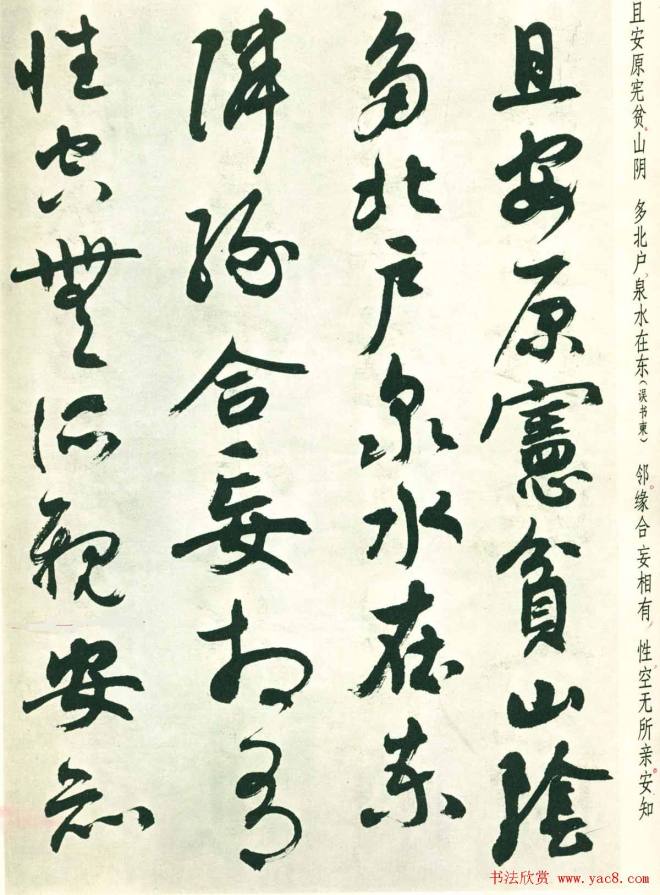 且安原憲貧山陰
多北户泉水在柬
隣缘合妄相有
性空無所親安知
且安原宪贫山阴 多北户泉水在东(误书柬) 邻缘合妄相有 性空无所亲安知
书法欣赏 www.yac8.com